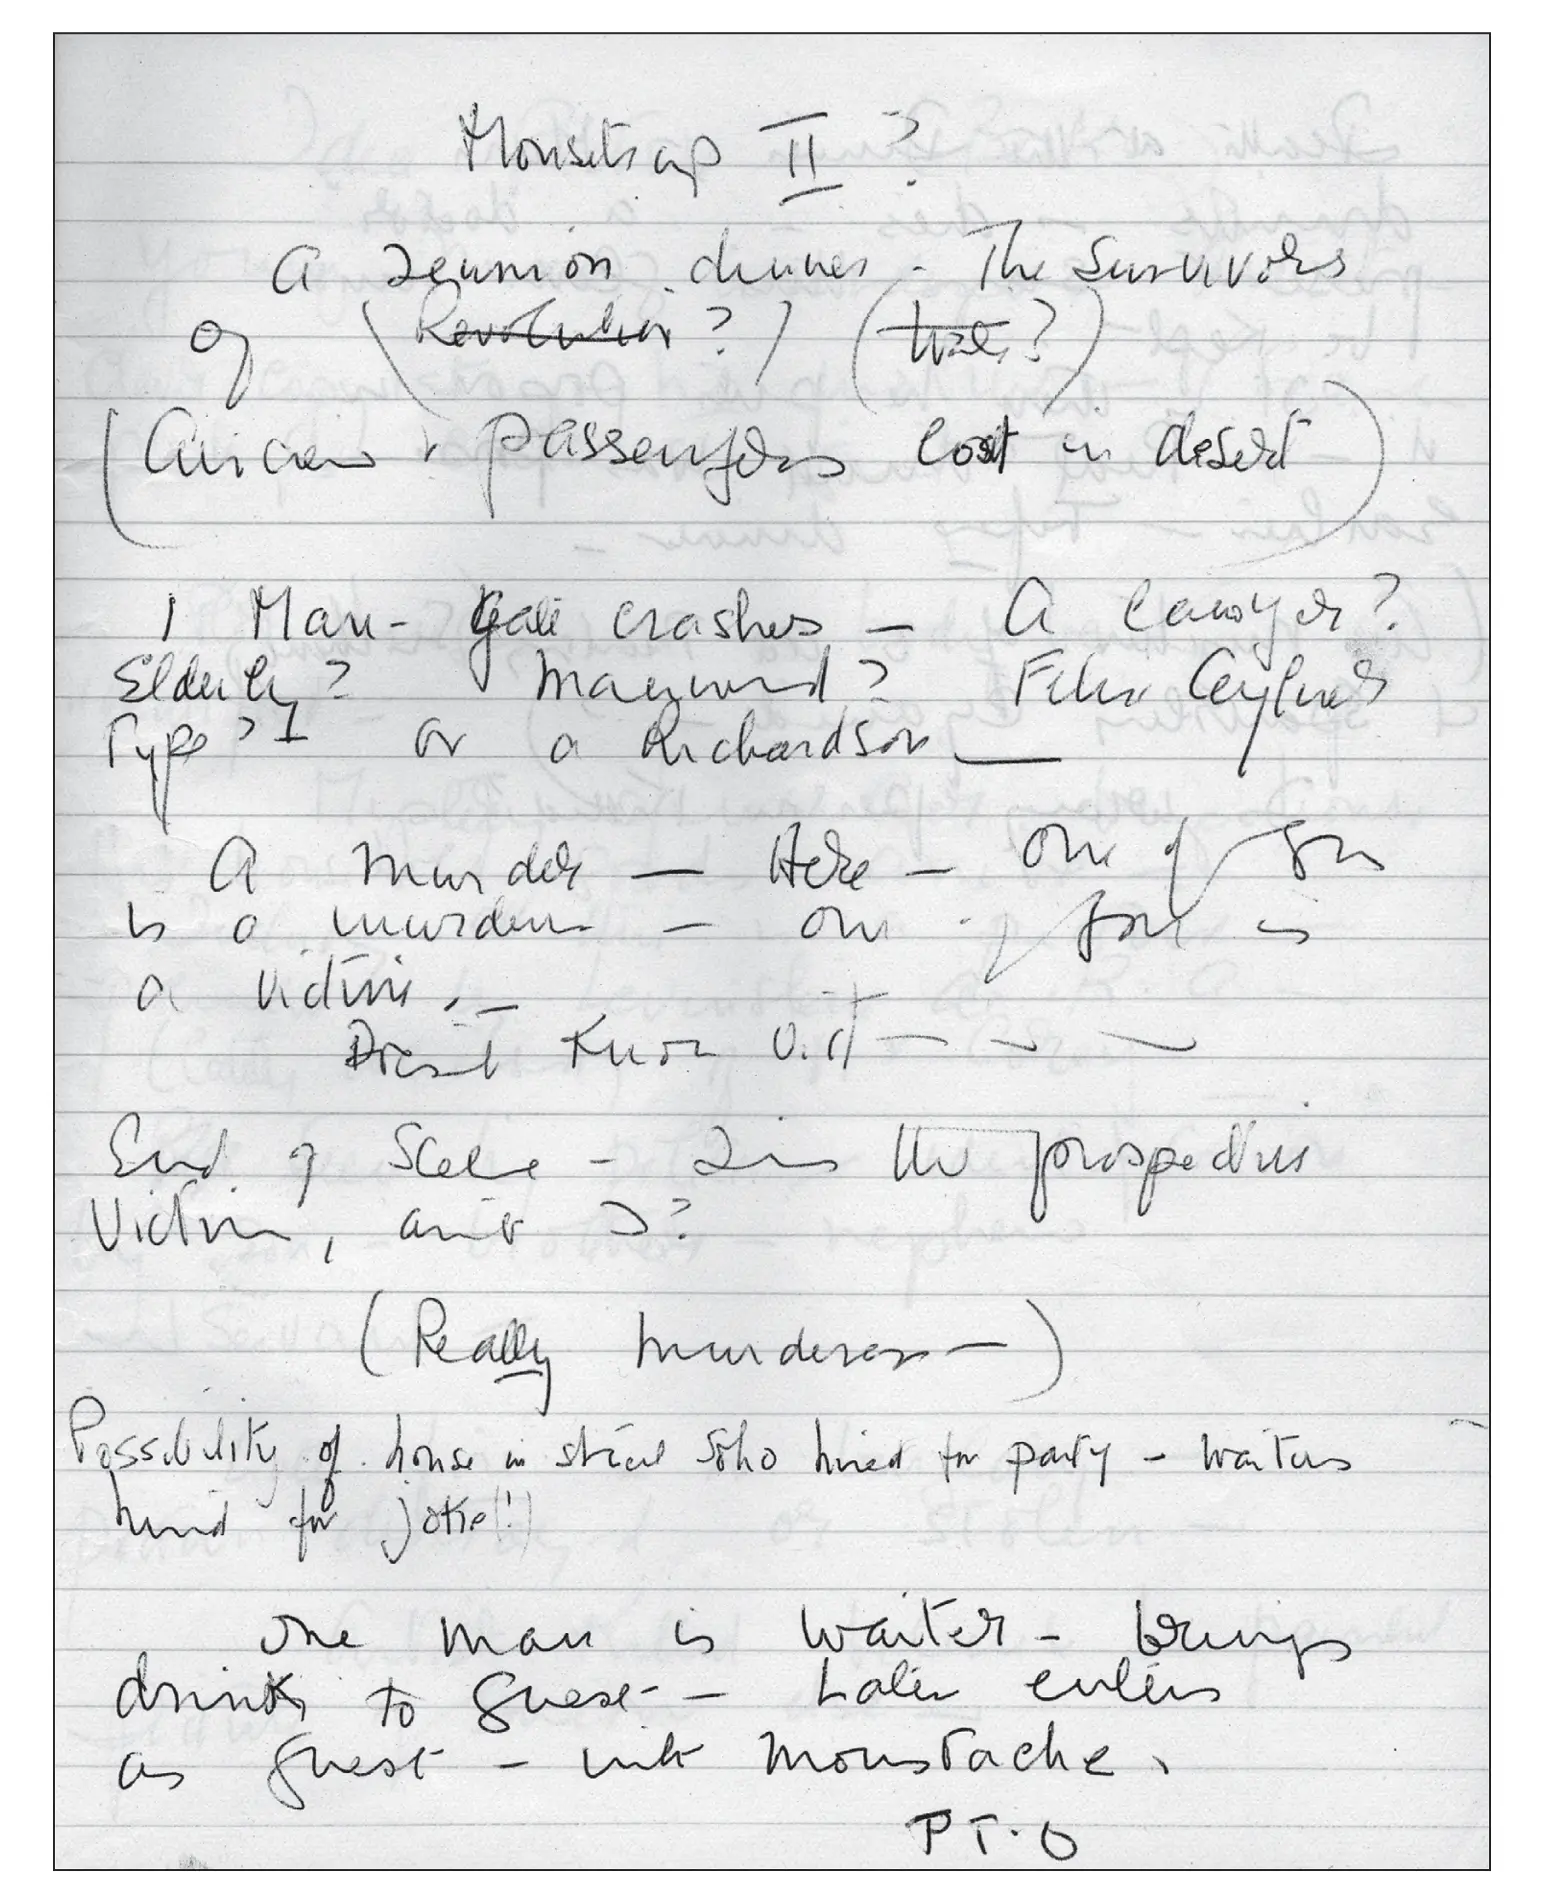 Mousetrap II ?
A reunion dinner - The Survivors
of (Revolution?) (War?)
(Aircrew & passengers lost in desert)
1 Man - Gate crashes — A lawyer?
Elderly? Mannered? Felix Aylmer
Type? or a Richardson —
A murder — Here — One of you
is a murderer — one of you is
a victim. —
Doesn't know it — — —
End of Scene - is the prospective
Victim, isn't
(Really murderer —)
Possibility of house in street Soho hired for party - waiters
hired for joke (!)
One man is waiter - brings
drinks to guest - Later enters
as guest - with moustache.
P T. O